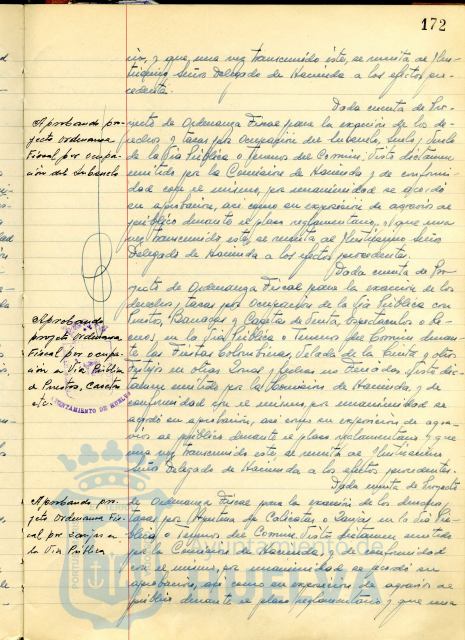 172
rio, y que una vez transcurrido éste, se remita al Ilus-
trísimo Señor Delegado de Hacienda a los efectos pro-
cedentes.
Dada cuenta de Pro-
Aprobando pro-
yecto Ordenanza
Fiscal por ocupa-
ción del Subsuelo
yecto de Ordenanza Fiscal para la exacción de los de-
rechos y tasas por Ocupación del Subsuelo, Suelo y Vuelo
de la Vía Pública o Terrenos del Común. Visto dictamen
emitido por la Comisión de Hacienda y de conformi-
dad con el mismo, por unanimidad se acordó
su aprobación, así como su exposición de agravios al
público durante el plazo reglamentario, y que una
vez transcurrido éste, se remita al Ilustrísimo Señor
Delegado de Hacienda a los efectos procedentes.
Dada cuenta de Pro-
Aprobando
proyecto Ordenanza
Fiscal por ocupa-
ción Vía Pública
de Puestos, Casetas
etc.
AYUNTAMIENTO DE HUELVA
yecto de Ordenanza Fiscal para la exacción de los
derechos y tasas por Ocupación de la Vía Pública con
Puestos, Barracas y Casetas de Venta, Espectáculos o Re-
creo, en la Vía Pública o Terrenos del Común durante
las Fiestas Colombinas, Velada de la Cinta y otros
festejos en otras zonas y fechas no feriadas. Visto dic-
tamen emitido por la Comisión de Hacienda, y de
conformidad con el mismo, por unanimidad se
acordó su aprobación, así como su exposición de agra-
vios al público durante el plazo reglamentario y que
una vez transcurrido éste, se remita al Ilustrísimo
Señor Delegado de Hacienda a los efectos procedentes.
Dada cuenta de Proyecto
Aprobando pro-
yecto Ordenanza Fis-
cal por zanjas en
la Vía Pública
de Ordenanza Fiscal para la exacción de los derechos y
tasas por Apertura de Calicatas o Zanjas en la Vía Pú-
blica o Terrenos del Común. Visto dictamen emitido
por la Comisión de Hacienda, y de conformidad
con el mismo, por unanimidad se acordó su
aprobación, así como su exposición de agravios al
público durante el plazo reglamentario y que una
Ayuntamiento de
HUELVA